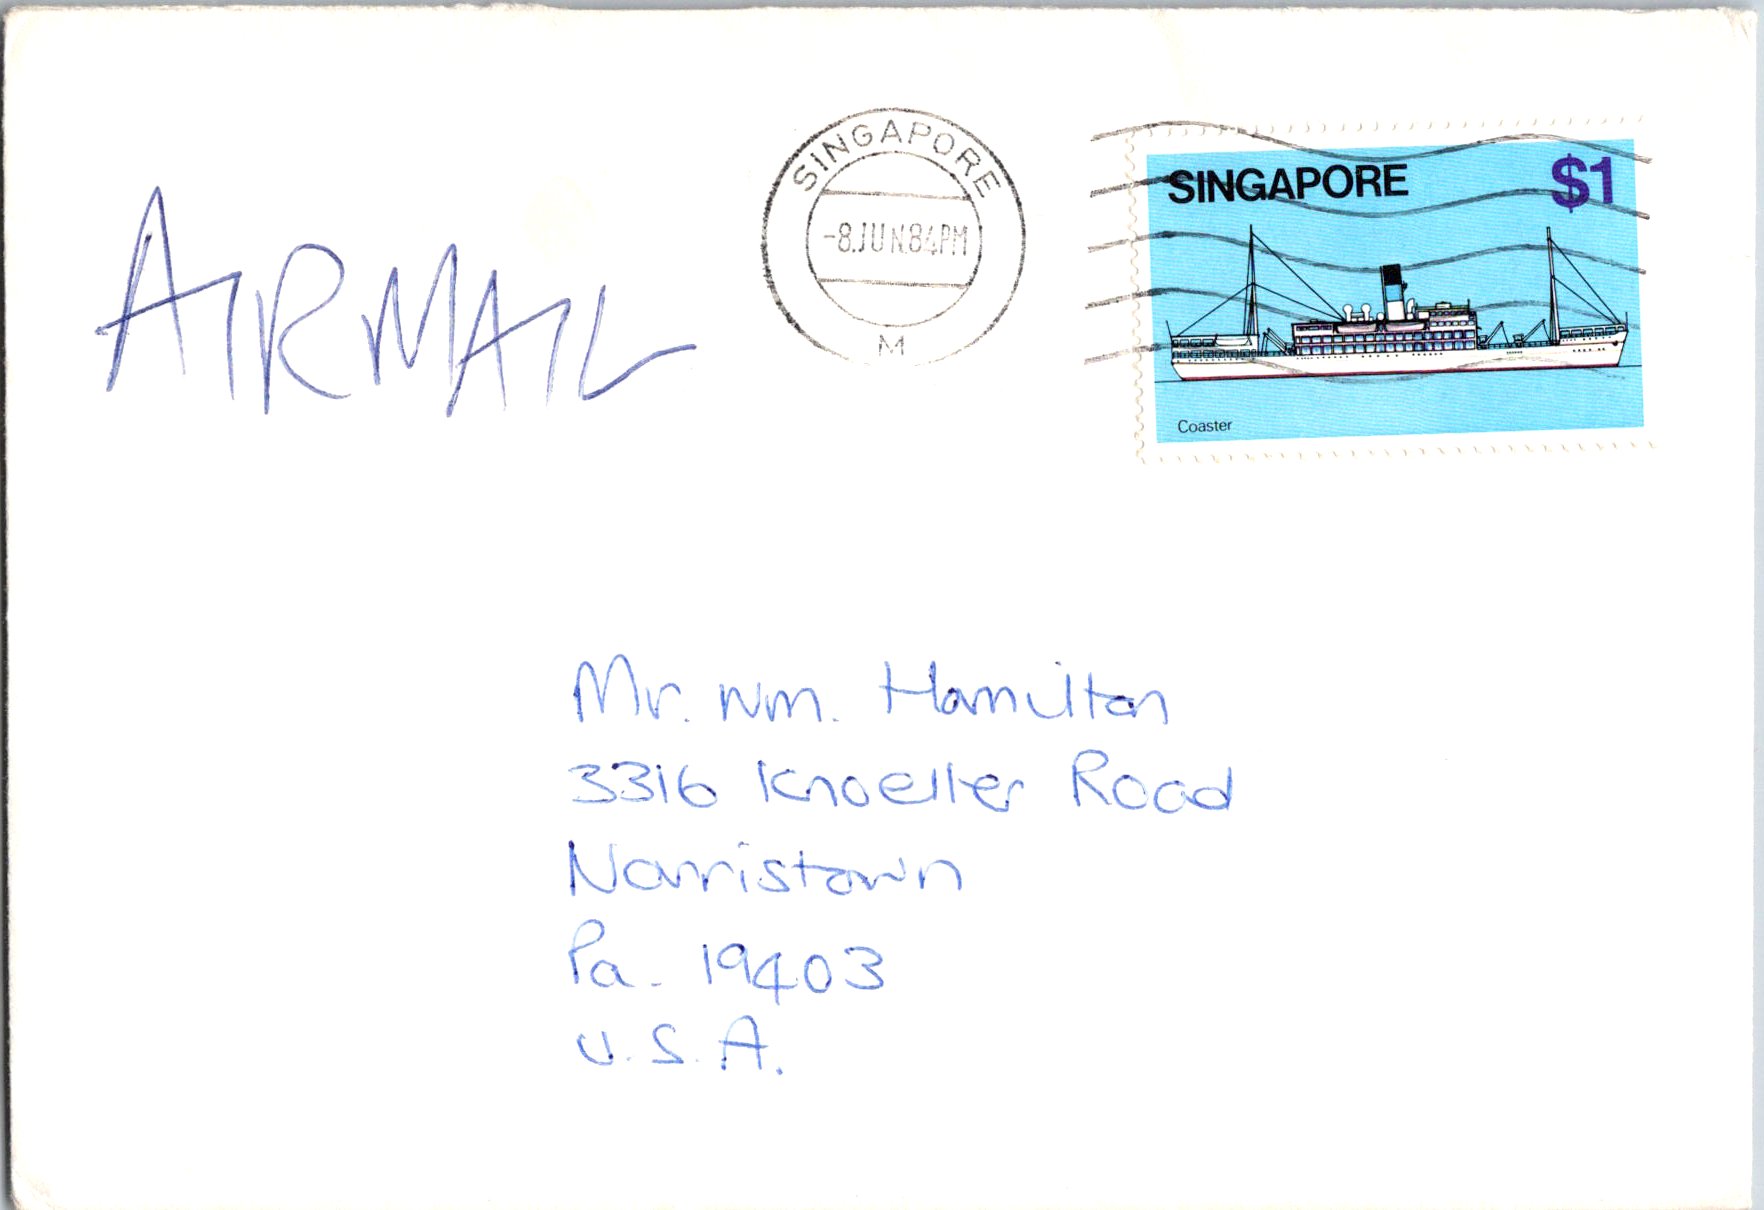 SINGAPORE
-8.JUN.84PM
M
SINGAPORE $1
Coaster
AIRMAIL
Mr. Wm. Hamilton
3316 Knoeller Road
Norristown
Pa. 19403
U.S.A.